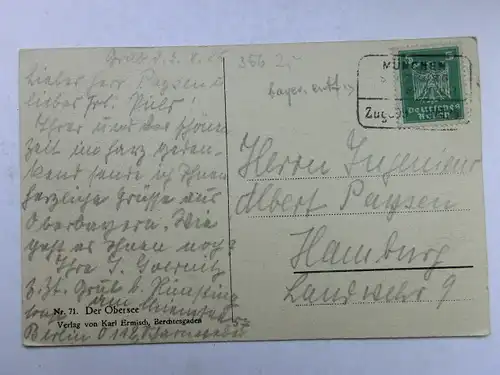 Grub d. 3. 8. 26
Lieber Herr Paysen u.
liebes Frl.
Ihrer und der schönen
Zeit im Harz geden-
kend sende ich Ihnen
herzliche Grüsse aus
Oberbayern. Wie
geht es Ihnen noch?
Ihre J. Goernitz
z. Zt. Grub b.
am Chiemsee
Nr. 71. Der Obersee
Verlag von Karl Ermisch, Berchtesgaden
Berlin O 112
356 25
MÜNCHEN
Zug
Deutsches
Reich
Herrn Ingenieur
Albert Paysen
Hamburg
Landwehr 9